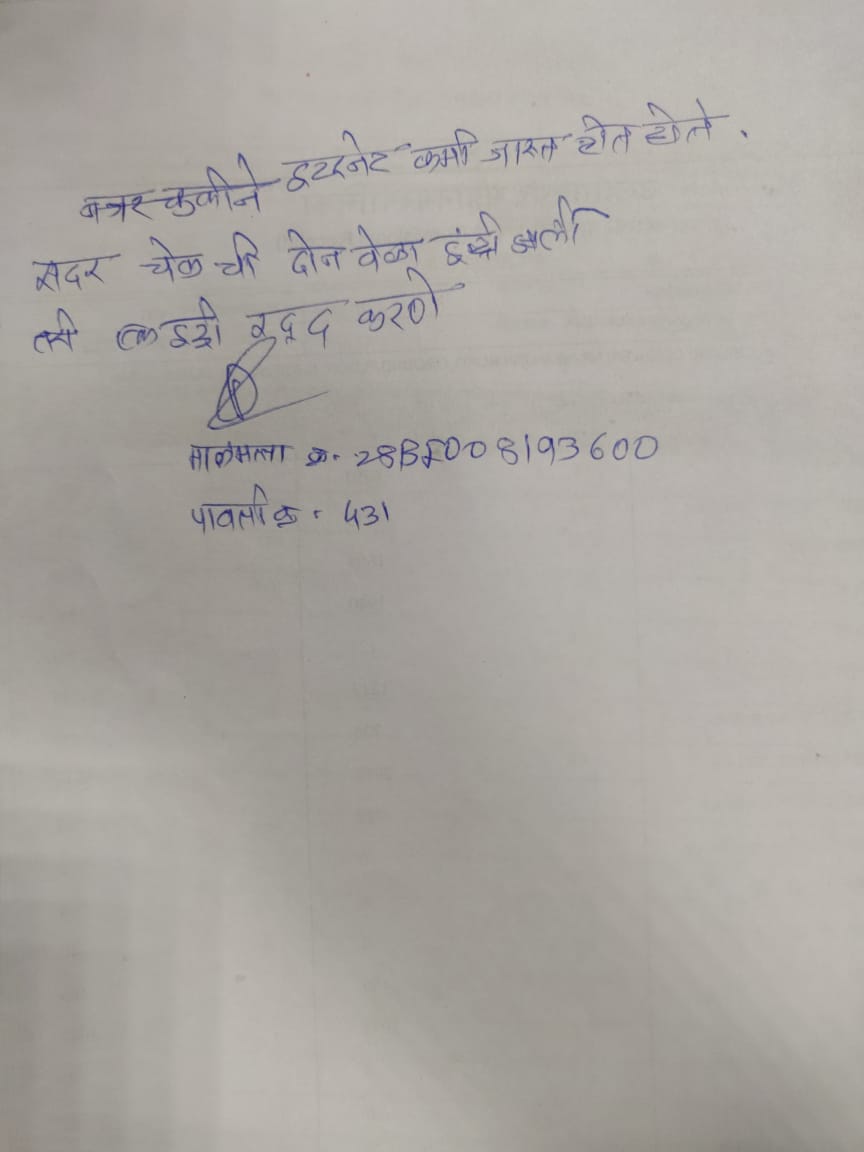 नजरचुकीने इटरनेट कमी जास्त होत होते .
सदर चेक ची दोन वेळा इंट्री झाली
तरी एक इंट्री रद्द करणे
मालमत्ता क्र. 28BF008193600
पावती क्र. 431